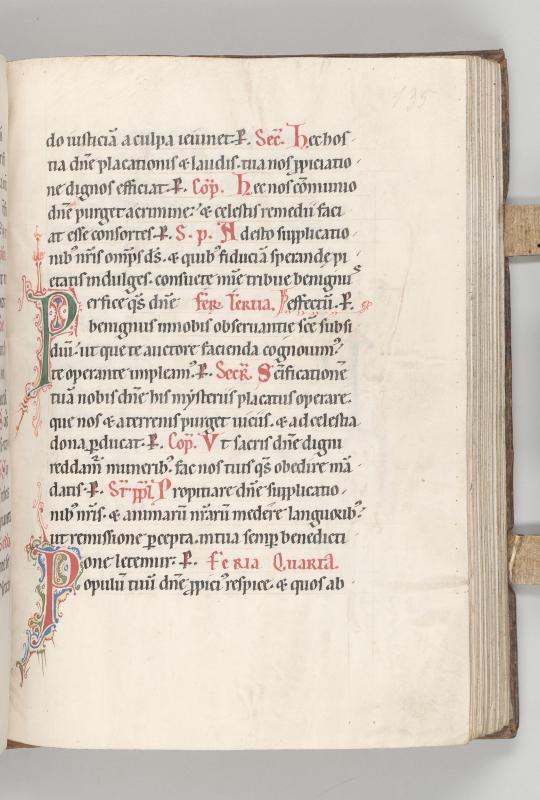 135
do iusticiā a culpa ieiunet· P̷. Sec̄. Hec hos-
tia dn̄e placationis & laudis· tua nos ꝓpiciatio-
ne dignos efficiat· P̷. Cōp̄. Hec nos cōmunio
dn̄e purget a crimine: & celestis remedii faci
at esse consortes· P̷. S. p. Adesto supplicatio-
nib' nr̄is omp̄s ds̄. & quib' fiduciā sperandę pi
etatis indulges· consuetę mīe tribue benignus
Perfice qs̄ dn̄e fer. Tertia. effectū. P̷.
benignus in nobis obseruantię scē subsi
diū· ut que te auctore facienda cognouim'
te operante impleam'· P̷. Secr̄. Scificationē
tuā nobis dn̄e his mysteriis placatus operare·
que nos & a terrenis purget uiciis· & ad celestia
dona ꝑducat· P̷. Cōp̄. Vt sacris dn̄e digni
reddam̄ munerib'· fac nos tuis qs̄ obedire mā-
datis· P̷. Sr̄ ppl̄. Propitiare dn̄e supplicatio-
nib' nr̄is· & animarū nr̄arū medere languorib'
ut remissione ꝑcepta· in tua semꝑ benedicti
one letemur· P̷. Feria Quarta.
Populū tuū dn̄e ꝓpici' respice· & quos ab